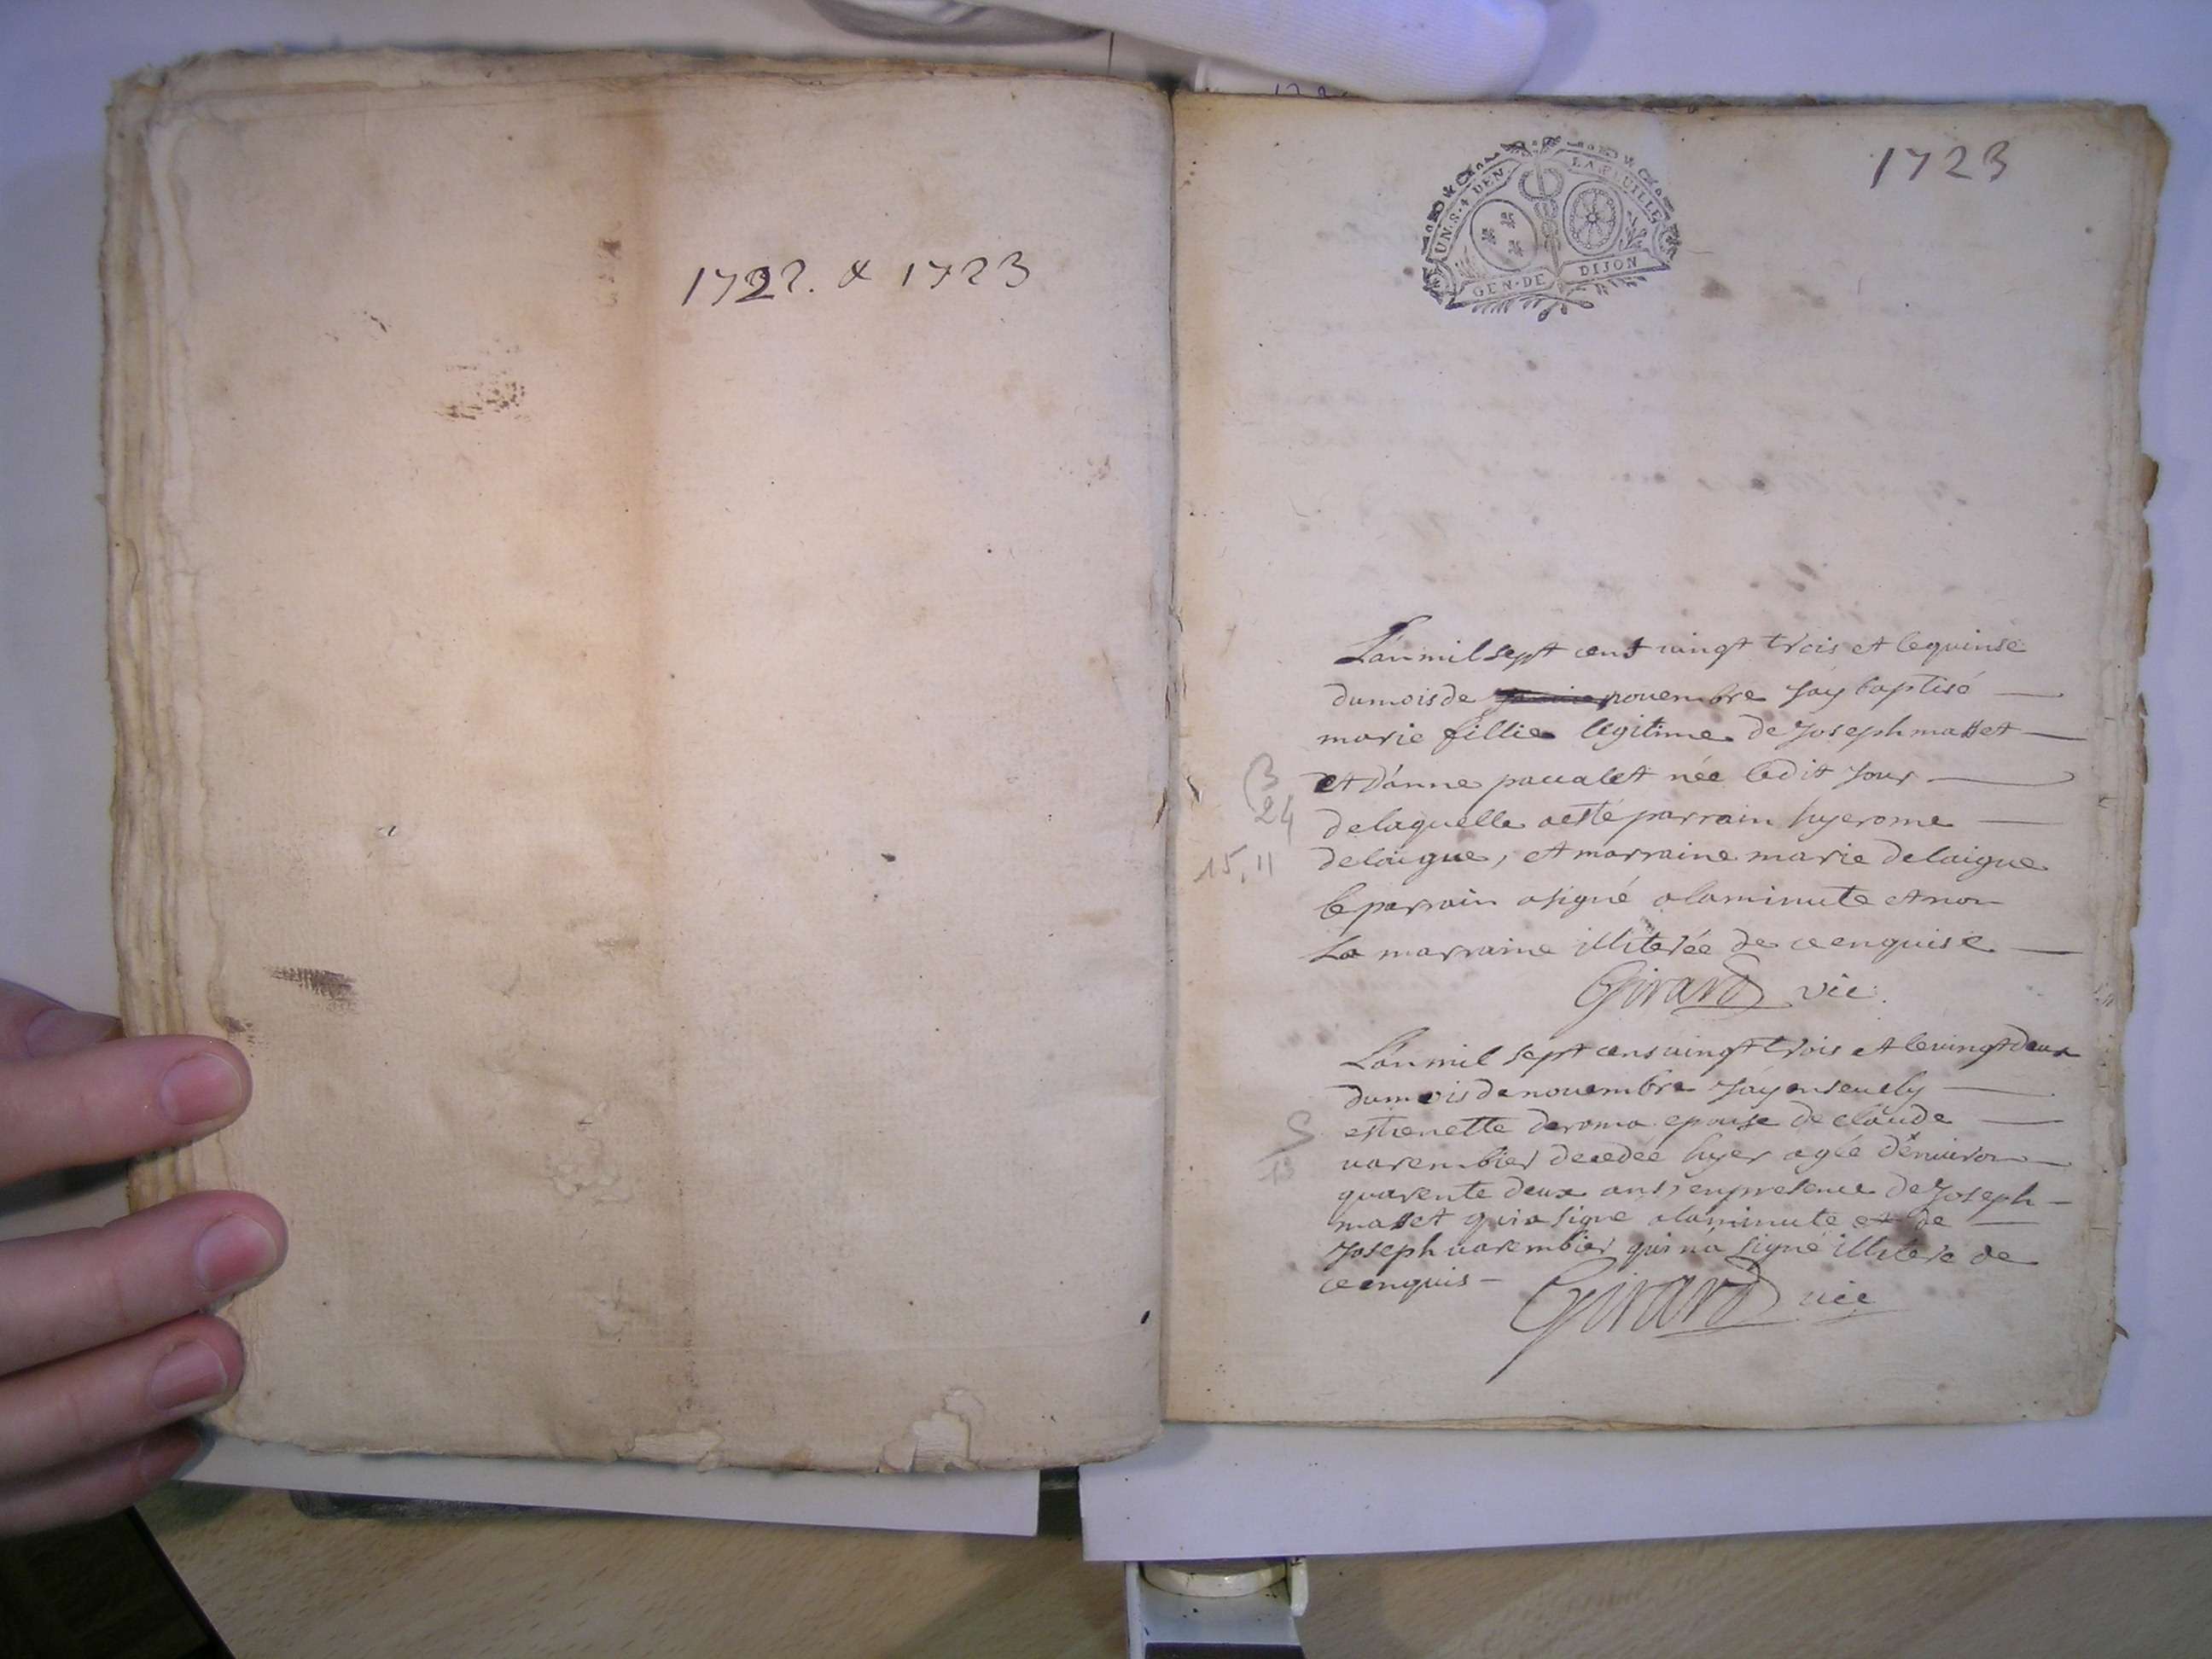 1722. & 1723
1723
UN.S.4 DEN. LA FEUILLE
GEN.DE DIJON
L'an mil sept cent vingt trois et le quinse
du mois de nouembre J'ay baptisé
marie fillie legitime de Joseph masset
et d'anne paccalet née ledit Jour
de laquelle a esté parrain hyerome
delaigue, et marraine marie delaigue
le parrain a signé a la minute et non
La marraine illiterée de ce enquise
Girard vic.
B
24
15, 11
L'an mil sept cens vingt trois et le vingt deux
du mois de nouembre J'ay enseuely
estienette deroma epouse de claude
uarembier decedée hyer agée d'enuiron
quarente deux ans, en presence de Joseph
masset qui a signé a la minute et de
Joseph uarembier qui n'a signé illiteré de
ce enquis
S
13
Girard vic